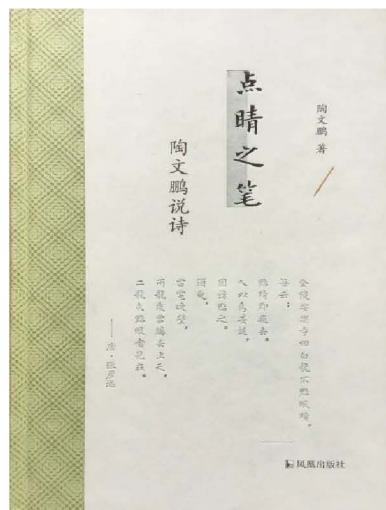 点睛之笔
陶文鹏说诗
陶文鹏 著
金陵安乐寺四白龙不点眼睛，
每云：
点睛即飞去。
人以为妄诞，
固请点之。
须臾，
雷电破壁，
两龙乘云腾去上天，
二龙未点眼者见在。
——唐·张彦远
凤凰出版社